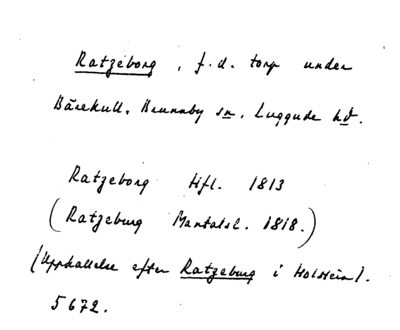 Ratzeborg, f.d. torp under
Bäsekull, Brunnby sn, Luggude hd.
Ratzeborg Hfl. 1813
(Ratzeburg Mantalsl. 1818.)
(Uppkallelse efter Ratzeburg i Holstein).
5672.